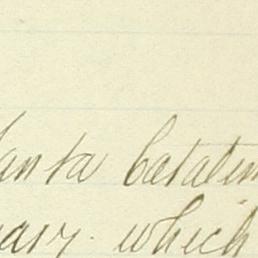 Santa Catalin
uary. which